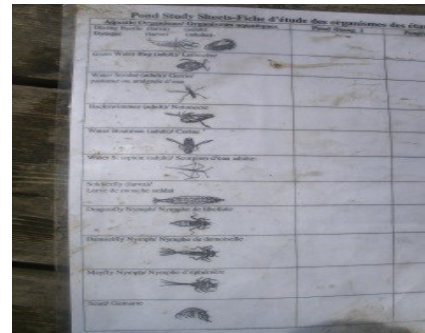 Pond Study Sheets-Fiche d'étude des organismes des éta
Aquatic Organisms/ Organismes aquatiques
Pond Stamp 1
Diving Beetle (larva) (adult)/
Dytique (larve) (adulte)
Giant Water Bug (adult)/
Water Strider (adult)/ Gerris
patineur ou araignée d'eau
Backswimmer (adult)/ Notonecte
Water Boatman (adult)/ Corise
Water Scorpion (adult)/ Scorpion d'eau adulte
Soldierfly (larva)/
Larve de mouche soldat
Dragonfly Nymph/ Nymphe de libellule
Damselfly Nymph/ Nymphe de demoiselle
Mayfly Nymph/ Nymphe d'éphémère
Scud/ Gammare